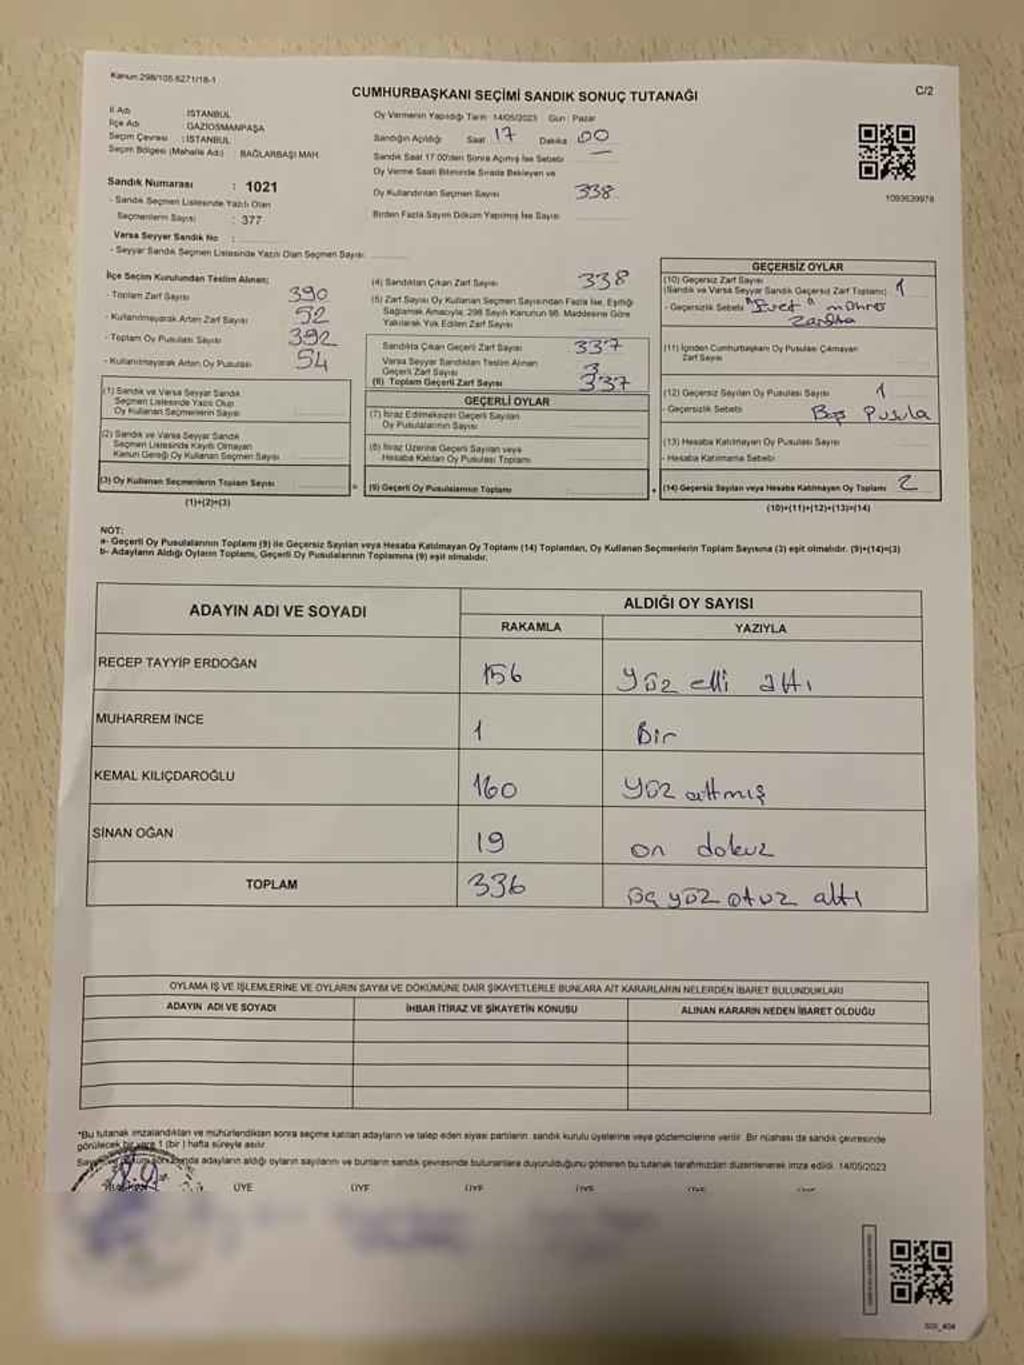 Kanun:298/105.6271/18-1
CUMHURBAŞKANI SEÇİMİ SANDIK SONUÇ TUTANAĞI
C/2
İl Adı : İSTANBUL
İlçe Adı : GAZİOSMANPAŞA
Seçim Çevresi : İSTANBUL
Seçim Bölgesi (Mahalle Adı) : BAĞLARBAŞI MAH.
Sandık Numarası : 1021
- Sandık Seçmen Listesinde Yazılı Olan
Seçmenlerin Sayısı : 377
Varsa Seyyar Sandık No :
- Seyyar Sandık Seçmen Listesinde Yazılı Olan Seçmen Sayısı:
Oy Vermenin Yapıldığı Tarih: 14/05/2023 Gün : Pazar
Sandığın Açıldığı Saat 17 Dakika : 00
Sandık Saat 17.00'den Sonra Açılmış İse Sebebi
Oy Verme Saati Bitiminde Sırada Bekleyen ve
Oy Kullandırılan Seçmen Sayısı 338
Birden Fazla Sayım Döküm Yapılmış İse Sayısı
1093639978
İlçe Seçim Kurulundan Teslim Alınan;
- Toplam Zarf Sayısı 390
- Kullanılmayarak Artan Zarf Sayısı 52
- Toplam Oy Pusulası Sayısı 392
- Kullanılmayarak Artan Oy Pusulası 54
(1) Sandık ve Varsa Seyyar Sandık
Seçmen Listesinde Yazılı Olup
Oy Kullanan Seçmenlerin Sayısı
(2) Sandık ve Varsa Seyyar Sandık
Seçmen Listesinde Kayıtlı Olmayan
Kanun Gereği Oy Kullanan Seçmen Sayısı
(3) Oy Kullanan Seçmenlerin Toplam Sayısı
(1)+(2)=(3)
(4) Sandıktan Çıkan Zarf Sayısı 338
(5) Zarf Sayısı Oy Kullanan Seçmen Sayısından Fazla İse, Eşitliği
Sağlamak Amacıyla, 298 Sayılı Kanunun 98. Maddesine Göre
Yakılarak Yok Edilen Zarf Sayısı
Sandıkta Çıkan Geçerli Zarf Sayısı 337
Varsa Seyyar Sandıktan Teslim Alınan
Geçerli Zarf Sayısı
(6) Toplam Geçerli Zarf Sayısı 337
GEÇERLİ OYLAR
(7) İtiraz Edilmeksizin Geçerli Sayılan
Oy Pusulalarının Sayısı
(8) İtiraz Üzerine Geçerli Sayılan veya
Hesaba Katılan Oy Pusulası Toplamı
= (9) Geçerli Oy Pusulalarının Toplamı
GEÇERSİZ OYLAR
(10) Geçersiz Zarf Sayısı
(Sandık ve Varsa Seyyar Sandık Geçersiz Zarf Toplamı) 1
- Geçersizlik Sebebi "Evet" mührü
Zarfta
(11) İçinden Cumhurbaşkanı Oy Pusulası Çıkmayan
Zarf Sayısı
(12) Geçersiz Sayılan Oy Pusulası Sayısı 1
- Geçersizlik Sebebi Boş Pusula
(13) Hesaba Katılmayan Oy Pusulası Sayısı
- Hesaba Katılmama Sebebi
+ (14) Geçersiz Sayılan veya Hesaba Katılmayan Oy Toplamı 2
(10)+(11)+(12)+(13)=(14)
NOT:
a- Geçerli Oy Pusulalarının Toplamı (9) ile Geçersiz Sayılan veya Hesaba Katılmayan Oy Toplamı (14) Toplamları, Oy Kullanan Seçmenlerin Toplam Sayısına (3) eşit olmalıdır. (9)+(14)=(3)
b- Adayların Aldığı Oyların Toplamı, Geçerli Oy Pusulalarının Toplamına (9) eşit olmalıdır.
ADAYIN ADI VE SOYADI
ALDIĞI OY SAYISI
RAKAMLA YAZIYLA
RECEP TAYYİP ERDOĞAN 156 Yüz elli altı
MUHARREM İNCE 1 Bir
KEMAL KILIÇDAROĞLU 160 Yüz altmış
SİNAN OĞAN 19 on dokuz
TOPLAM 336 üç yüz otuz altı
OYLAMA İŞ VE İŞLEMLERİNE VE OYLARIN SAYIM VE DÖKÜMÜNE DAİR ŞİKAYETLERLE BUNLARA AİT KARARLARIN NELERDEN İBARET BULUNDUKLARI
ADAYIN ADI VE SOYADI İHBAR İTİRAZ VE ŞİKAYETİN KONUSU ALINAN KARARIN NEDEN İBARET OLDUĞU
*Bu tutanak imzalandıktan ve mühürlendikten sonra seçime katılan adayların ve talep eden siyasi partilerin sandık kurulu üyelerine veya gözlemcilerine verilir. Bir nüshası da sandık çevresinde
görülecek bir yere 1 (bir) hafta süreyle asılır.
adayların aldığı oyların sayılarını ve bunların sandık çevresinde bulunanlara duyurulduğunu gösteren bu tutanak tarafımızdan düzenlenerek imza edildi. 14/05/2023
ÜYE ÜYE ÜYE ÜYE